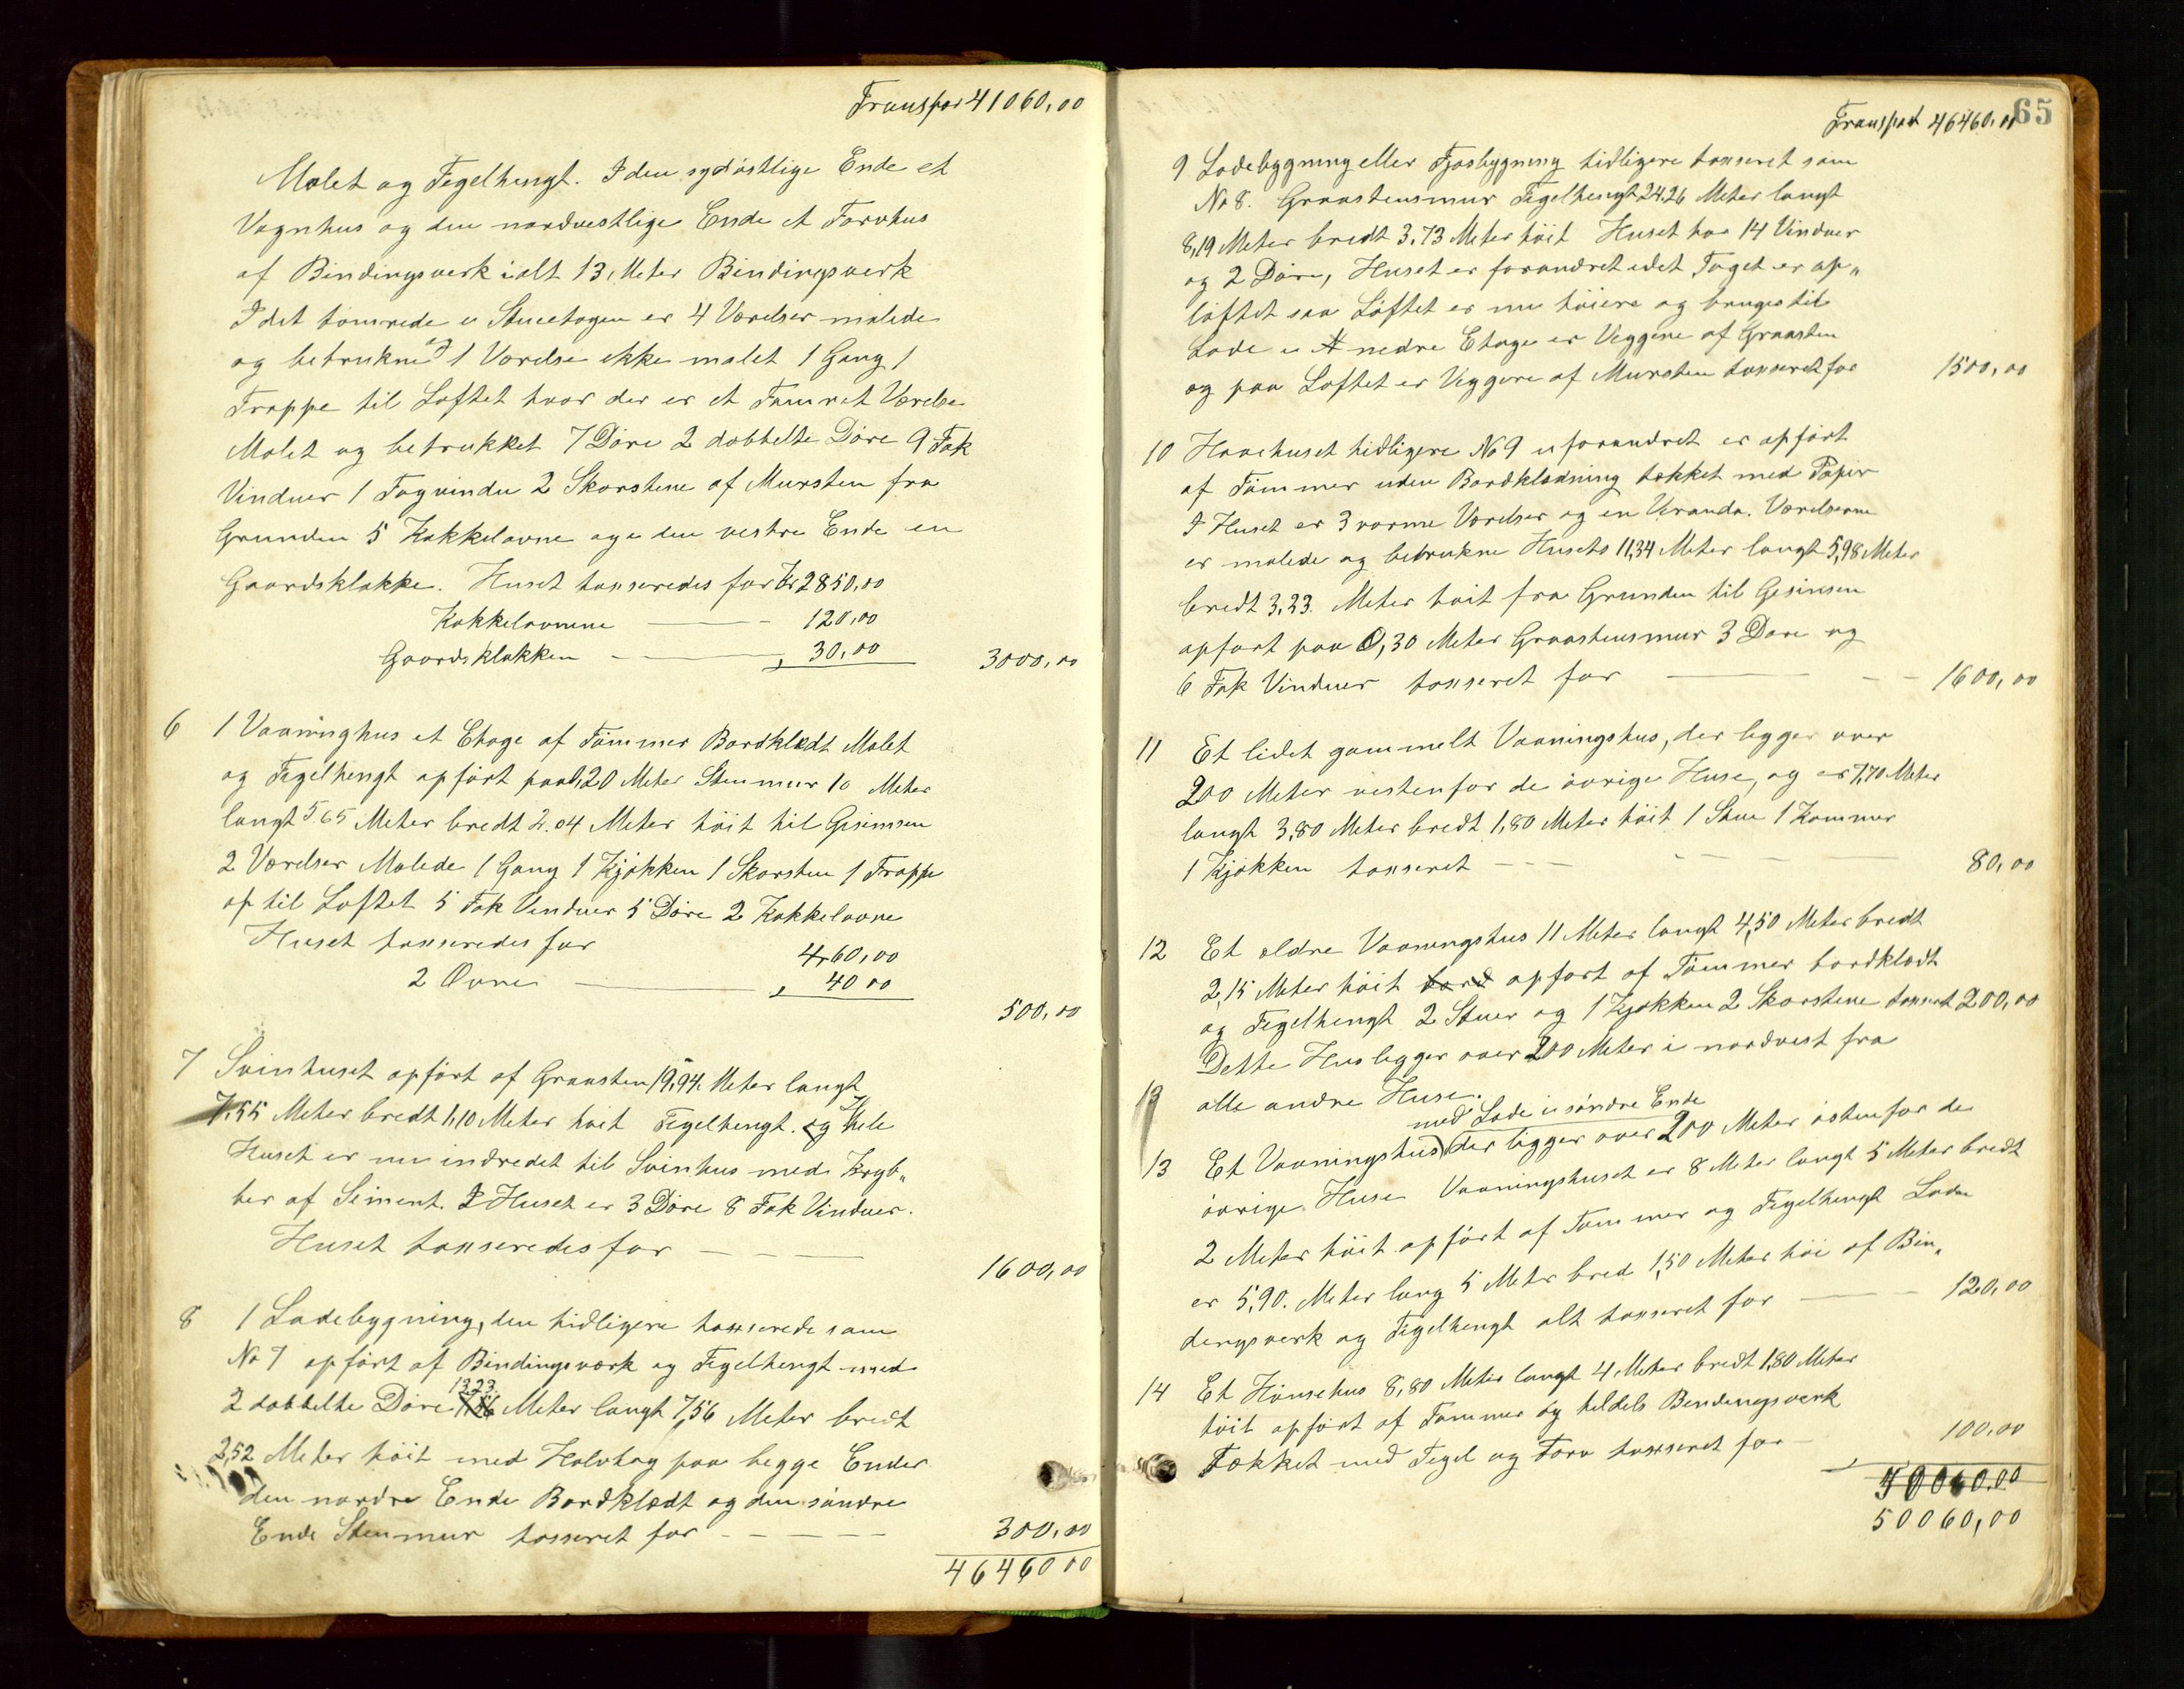 Transpor 41060,00
Malet og Tegelhengt. I den sydöstlige Ende et
Vognhus og den nordvestlige Ende et Torvhus
af Bindingsverk ialt 13, Meter Bindingsverk
I det tömrede i Stueetagen er 4 Værelser malede
og betrukne og 1 Værelse ikke malet 1 Gang 1
Trappe til Loftet hvor der er et Tømret Værelse
Malet og betrukket 7 Döre 2 dobbelte Döre 9 Fak
Vinduer 1 Tagvindu 2 Skorstene af Mursten fra
Grunden 5 Kakkelovne og i den vestre Ende en
Gaardsklokke. Huset taxseredes for Kr 2850,00
Kakkelovnene — 120,00
Gaardsklokken — " 30,00 3000,00
6 1 Vaaninghus et Etage af Tömmer Bordklædt Malet
og Tegelhengt opfört paa 1,20 Meter Stenmur 10 Meter
langt 5.65 Meter bredt 2.04 Meter höit til Gesimsen
2 Værelser Malede 1 Gang 1 Kjøkken 1 Skorsten 1 Trappe
op til Loftet 5 Fak Vinduer 5 Döre 2 Kakkelovne
Huset taxseredes for 460,00
2 Ovne — " 40 00
500,00
7 Svinhuset opfört af Graasten 19,94 Meter langt
7,55 Meter bredt 1,10 Meter høit Tegelhengt. og Hele
Huset er nu indredet til Svinhus med Kryb„
ber af Siment. I Huset er 3 Döre 8 Fak Vinduer.
Huset taxseredes for — — —
1600,00
8 1 Ladebygning, den tidligere taxserede som
No 7 opfört af Bindingsværk og Tegelhengt med
13,23
2 dobbelte Döre Meter langt 7,56 Meter bredt
2,52 Meter höit med Halvtag paa begge Ender
den nordre Ende Bordklædt og den söndre
Ende Stenmur taxseret for — — — 300,00
46460 00
65
Transport 46460,00
9 Ladebygning eller Fjøsbygning tidligere taxseret som
No 8. Graastensmur Tegelhengt 24.26 Meter langt
8,19 Meter bredt 3,73 Meter höit Huset har 14 Vinduer
og 2 Döre, Huset er forandret idet Taget er op„
löftet saa Löftet er nu höiere og bruges til
Lade i nedre Etage er Veggene af Graasten
og paa Loftet er Veggene af Mursten taxseret for 1500,00
10 Havehuset tidligere No 9 uforandret er opfört
af Tömmer uden Bordklædning tekket med Papir
I Huset er 3 varme Værelser og en Veranda. Værelserne
er malede og betrukne Husets 11,34 Meter langt 5,98 Meter
bredt 3,23 Meter høit fra Grunden til Gesimsen
opført paa 0,30 Meter Graastensmur 3 Døre og
6 Fak Vinduer taxseret for — — — 1600,00
11 Et lidet gammelt Vaaningshus, der ligger over
200 Meter vestenfor de övrige Huse, og er 7,70 Meter
langt 3,80 Meter bredt 1,80 Meter höit 1 Stue 1 Kammer
1 Kjøkken taxseret — — — 80,00
12 Et eldre Vaaningshus 11 Meter langt 4,50 Meter bredt
2,15 Meter höit bord opført af Tömmer bordklædt
og Tegelhengt 2 Stuer og 1 Kjøkken 2 Skorstene taxseret 200,00
Dette Hus ligger over 200 Meter i nordvest fra
13 alle andre Huse.
med Lade i söndre Ende
13 Et Vaaningshus der ligger over 200 Meter östenfor de
övrige Huse Vaaningshuset er 8 Meter langt 5 Meter bredt
2 Meter höit opfört af Tømmer og Tegelhengt Laden
er 5,90. Meter lang 5 Meter bred 1,50 Meter höi af Bin„
dingsverk og Tegelhengt alt taxseret for — 120,00
14 Et Hönsehus 8,80 Meter langt 4 Meter bredt 1,80 Meter
höit opfört af Tømmer og tildels Bindingsverk
Tækket med Tegel og Torv taxseret for — 100,00
50060,00
50060,00